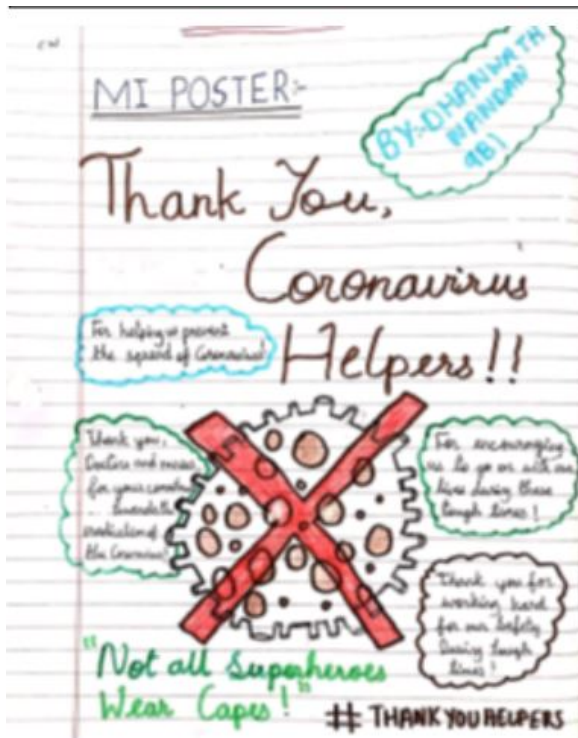 CW
MI POSTER:-
BY:-DHANWATH
NANDAN
9B1
Thank You,
Coronavirus
Helpers!!
For helping us prevent
the spread of Coronavirus!
Thank you,
Doctors and nurses
for your
towards the
eradication of
the Coronavirus!
For encouraging
us to go on with our
lives during these
tough times!
Thank you for
working hard
for our safety
During tough
times!
"Not all Superheroes
Wear Capes!"
# THANKYOUHELPERS